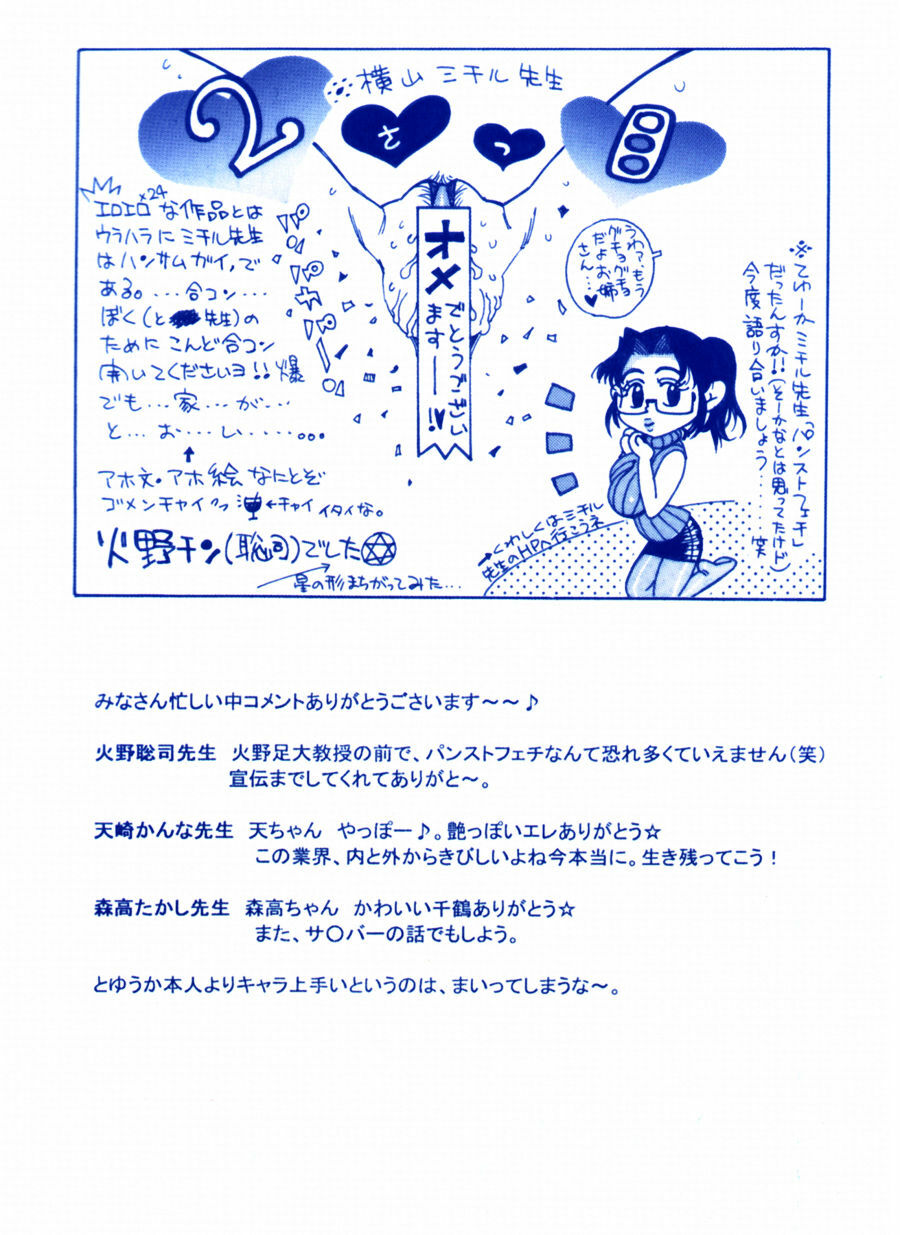 横山ミチル先生
2
さ
つ
目
エロエロ×24な作品とは
ウラハラにミチル先生
はハンサムガイ、で
ある。...合コン...
ぼく(と 先生)の
ためにこんど合コン
開いてくださいヨ!!爆
でも...家...が...
と...お...い.......
↑
アホ文・アホ絵なにとぞ
ゴメンチャイクッ ←チャイ イタイな。
火野チン(聡司)でした
星の形まちがってみた...
オメ
でとうござい
ます――!!
うわァ、もう
グチョグチョ
だよお姉
さん...♥
※てゆーかミチル先生「パンストフェチ」
だったんすか!!(そーかなとは思ってたけド)
今度語り合いましょう....笑
→くわしくはミチル
先生のHPへ行こうネ
みなさん忙しい中コメントありがとうございます~~♪
火野聡司先生 火野足大教授の前で、パンストフェチなんて恐れ多くていえません(笑)
宣伝までしてくれてありがと~。
天崎かんな先生 天ちゃん やっぽー♪。艶っぽいエレありがとう☆
この業界、内と外からきびしいよね今本当に。生き残ってこう!
森高たかし先生 森高ちゃん かわいい千鶴ありがとう☆
また、サ〇バーの話でもしよう。
とゆうか本人よりキャラ上手いというのは、まいってしまうな~。